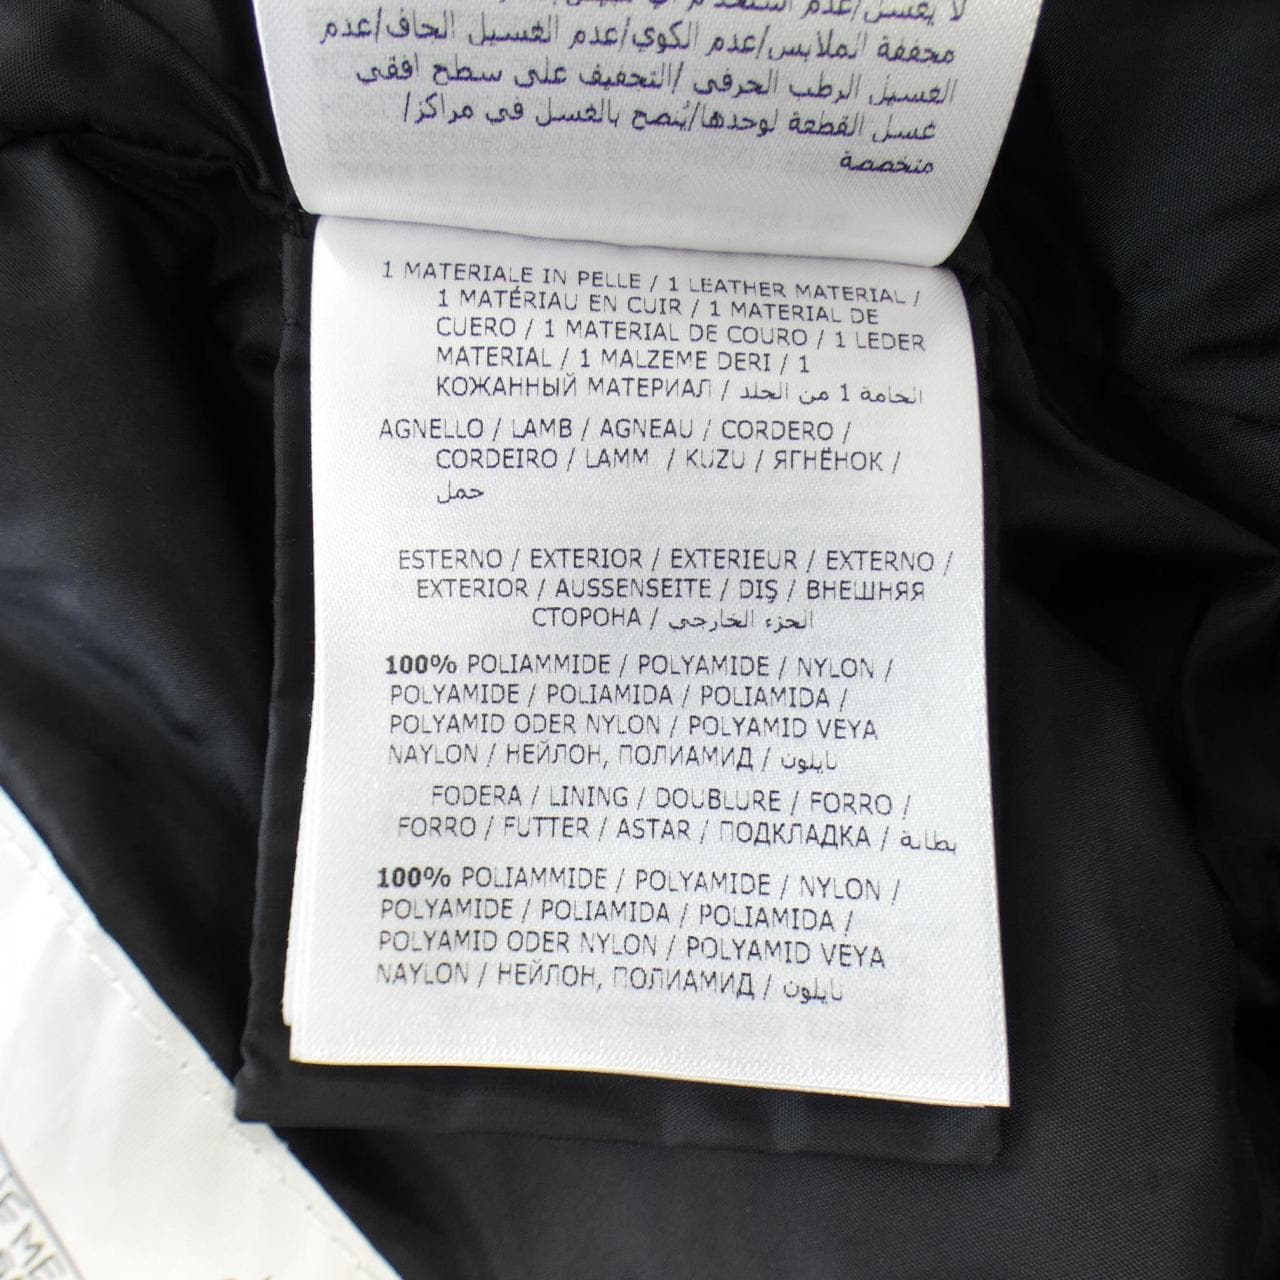 لا يغسل/عدم استخدام
مجففة الملابس/عدم الكوي/عدم الغسيل الجاف/عدم
الغسيل الرطب الحرفي /التجفيف على سطح افقي
غسل القطعة لوحدها/يُنصح بالغسل في مراكز/
متخصصة
1 MATERIALE IN PELLE / 1 LEATHER MATERIAL /
1 MATÉRIAU EN CUIR / 1 MATERIAL DE
CUERO / 1 MATERIAL DE COURO / 1 LEDER
MATERIAL / 1 MALZEME DERI / 1
КОЖАННЫЙ МАТЕРИАЛ / الخامة 1 من الجلد
AGNELLO / LAMB / AGNEAU / CORDERO /
CORDEIRO / LAMM / KUZU / ЯГНЁНОК /
حمل
ESTERNO / EXTERIOR / EXTERIEUR / EXTERNO /
EXTERIOR / AUSSENSEITE / DIŞ / ВНЕШНЯЯ
СТОРОНА / الجزء الخارجي
100% POLIAMMIDE / POLYAMIDE / NYLON /
POLYAMIDE / POLIAMIDA / POLIAMIDA /
POLYAMID ODER NYLON / POLYAMID VEYA
NAYLON / НЕЙЛОН, ПОЛИАМИД / نايلون
FODERA / LINING / DOUBLURE / FORRO /
FORRO / FUTTER / ASTAR / ПОДКЛАДКА / بطانة
100% POLIAMMIDE / POLYAMIDE / NYLON /
POLYAMIDE / POLIAMIDA / POLIAMIDA /
POLYAMID ODER NYLON / POLYAMID VEYA
NAYLON / НЕЙЛОН, ПОЛИАМИД / نايلون